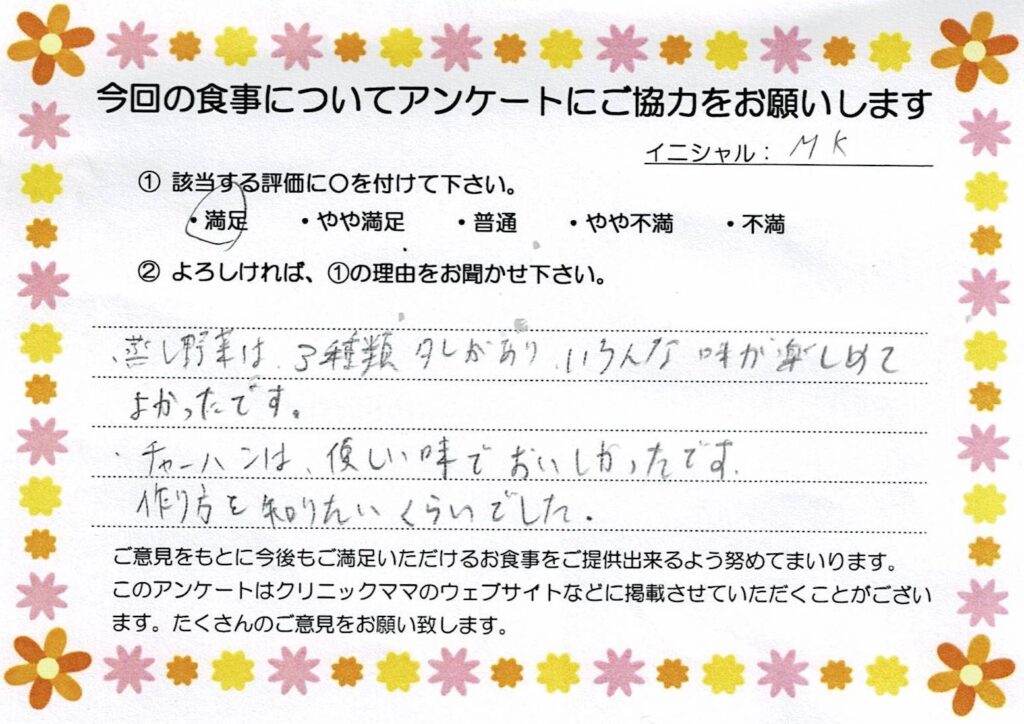 今回の食事についてアンケートにご協力をお願いします
イニシャル： M K
① 該当する評価に〇を付けて下さい。
・満足 ・やや満足 ・普通 ・やや不満 ・不満
② よろしければ、①の理由をお聞かせ下さい。
・蒸し野菜は、3種類タレがあり、いろんな味が楽しめて
よかったです。
・チャーハンは、優しい味でおいしかったです。
作り方を知りたいくらいでした。
ご意見をもとに今後もご満足いただけるお食事をご提供出来るよう努めてまいります。
このアンケートはクリニックママのウェブサイトなどに掲載させていただくことがござい
ます。たくさんのご意見をお願い致します。